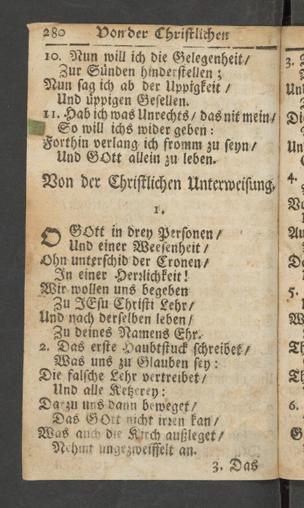 280 Von der Christlichen
10. Nun will ich die Gelegenheit/
Zur Sünden hinderstellen;
Nun sag ich ab der Uppigkeit/
Und üppigen Gesellen.
11. Hab ich was Unrechts/ das nit mein/
So will ichs wider geben:
Forthin verlang ich fromm zu seyn/
Und GOtt allein zu leben.
Von der Christlichen Unterweisung.
1.
O GOtt in drey Personen/
Und einer Weesenheit/
Ohn unterschid der Cronen/
In einer Herzlichkeit!
Wir wollen uns begeben
Zu JEsu Christi Lehr/
Und nach derselben leben/
Zu deines Namens Ehr.
2. Das erste Haubtstuck schreibet/
Was uns zu Glauben sey:
Die falsche Lehr vertreibet/
Und alle Ketzerey:
Darzu uns dann beweget/
Das GOtt nicht irren kan/
Was auch die Kirch außleget/
Nehmt ungezweiffelt an.
3. Das
3.
Un
Di
4.
Au
5.
Th
Th
6.